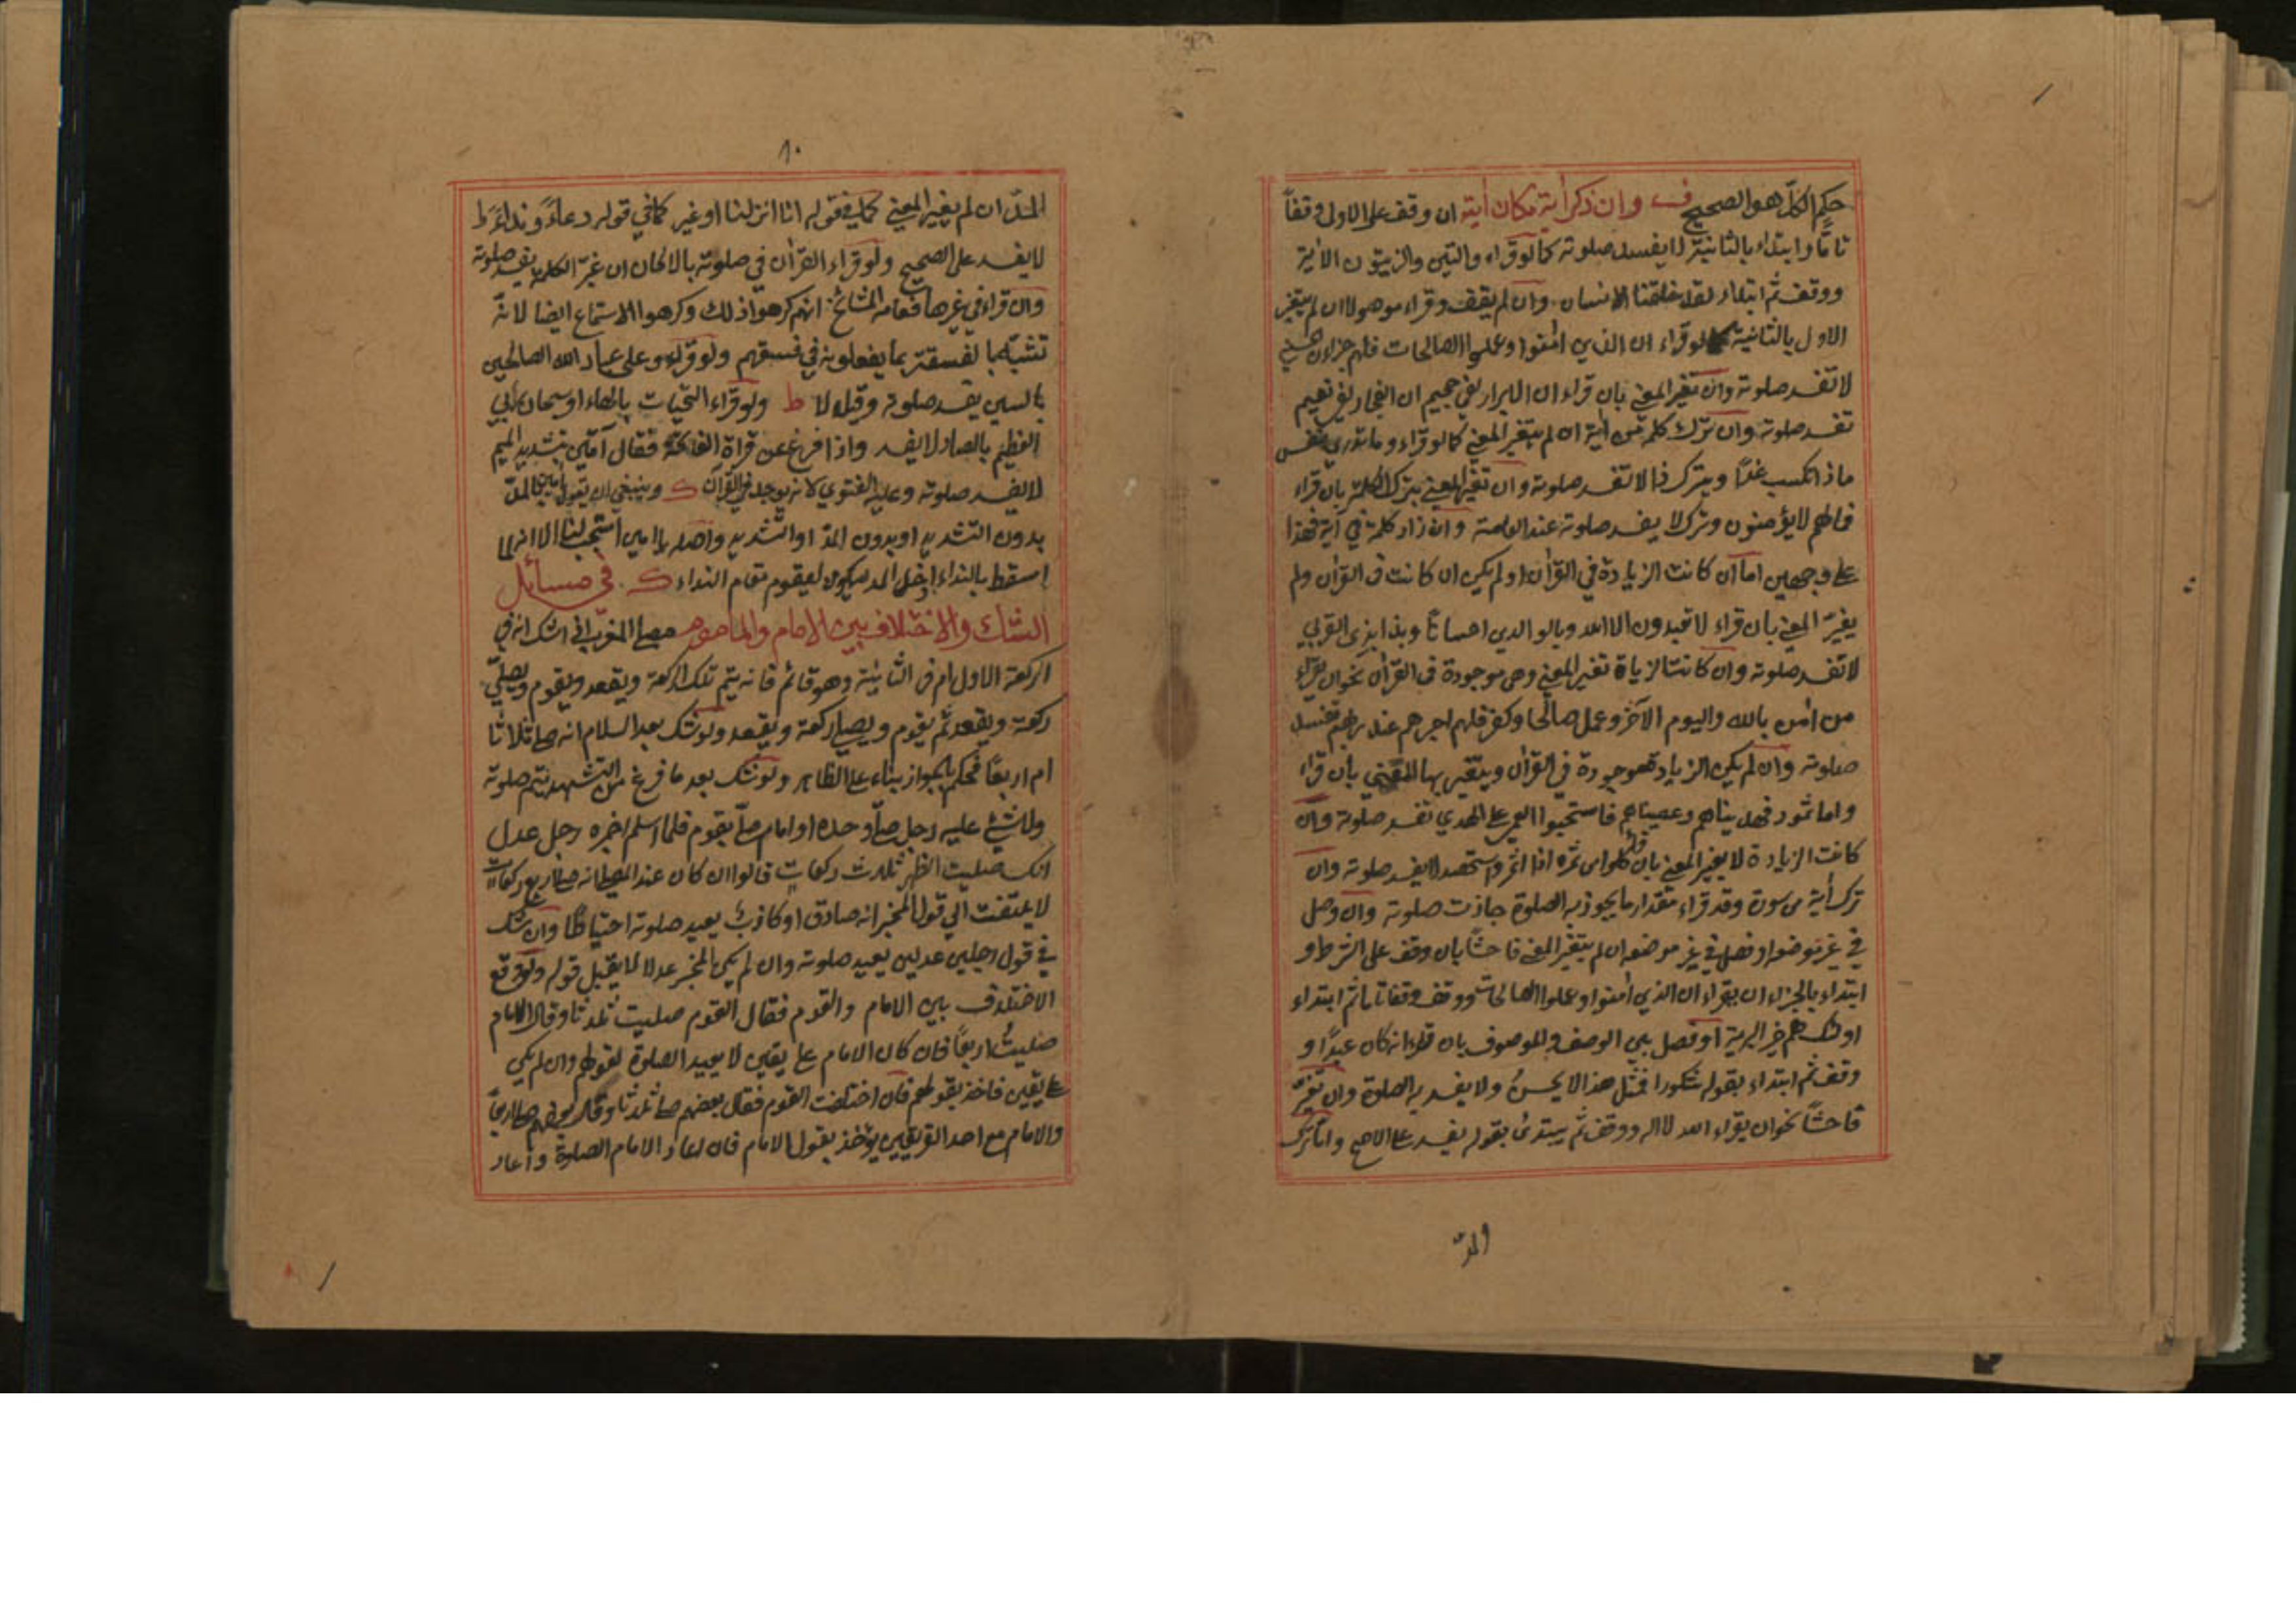 حكم الكل هو الصحيح ف وان ذكر آية مكان آية ان وقف على الاولى وقفاً
تاماً وابتداء بالثانية لا يفسد صلوته كما لو قراء والتين والزيتون الآية
ووقف ثم ابتداء لقد خلقنا الانسان وان لم يقف وقراء موصولا ان لم يتغير
الاول بالثانية كما لو قراء ان الذين امنوا وعملوا الصالحات فلهم جزاءن الحسنى
لا تفسد صلوته وان تغير المعنى بان قراء ان الابرار لفي جحيم ان الفجار لفي نعيم
تفسد صلوته وان ترك كلمة من آية ان لم يتغير المعنى كما لو قراء وما تدري نفس
ماذا تكسب غداً وبترك ذا لا تفسد صلوته وان تغير المعنى بترك الكلمة بان قراء
فمالهم لا يؤمنون وترك لا يفسد صلوته عند العامة وان زاد كلمة في آية فهذا
على وجهين اما ان كانت الزيادة في القرآن او لم يكن ان كانت في القرآن ولم
يغير المعنى بان قراء لا تعبدون الا الله وبالوالدين احساناً وبذا بذي القربى
لا تفسد صلوته وان كانت الزياة تغير المعنى وهي موجودة في القرآن نحو ان يقراء
من امن بالله واليوم الآخر وعمل صالحا وكفر فلهم اجرهم عند ربهم تفسد
صلوته وان لم يكن الزيادة موجودة في القرآن ويتغير بها المعنى بان قراء
واما ثمود فهديناهم وعصيناهم فاستحبوا العمى على الهدي تفسد صلوته وان
كانت الزيادة لا يغير المعنى بان قراء كلوا من ثمره اذا اثمر واستحصد لا يفسد صلوته وان
ترك آية من سورة وقد قراء مقدار ما يجوز به الصلوة جازت صلوته وان وصل
في غير موضعه او فصل في غير موضعه ان لم يتغير المعنى فاحشاً بان وقف على الشرط و
ابتداء بالجزاء ان يقراء ان الذين امنوا وعملوا الصالحات ووقف وقفا تاما ثم ابتداء
اولئك هم خير البرية او فصل بين الوصف والموصوف بان قراء انه كان عبداً و
وقف ثم ابتداء بقوله شكورا فمثل هذا لا يحسن ولا يفسد به الصلوة وان تغير
فاحشاً نحو ان يقراء الله لا اله ووقف ثم يبتدئ بقوله يفسد على الاصح واما ترك
والمد
١٠
المد ان لم يغير المعنى كما في قوله انا انزلنا او غير كما في قوله دعاءً ونداءً ط
لا يفسد على الصحيح ولو قراء القرآن في صلوته بالالحان ان غير الكلمة يفسد صلوته
وان قراء في غيرها فعامة المشائخ انهم كرهوا ذلك وكرهوا الاستماع ايضا لانه
تشبه بالفسقة بما يفعلونه في فسقهم ولو قراء وعلى عباد الله الصالحين
بالسين يفسد صلوته وقيل لا ط ولو قراء التحيات بالهاء او سبحان ربي
العظيم بالصاد لا يفسد واذا فرغ عن قراة الفاتحة فقال آمين بتشديد الميم
لا يفسد صلوته وعليه الفتوي لانه يوجد في القرآن ك وينبغي ان يقول آمين بالمد
بدون التشديد او بدون المد او التشديد واصله يا امين استجب لنا الا انه لما
اسقط ياالنداء ادخل المد ليكون ليقوم مقام النداء ك . في مسائل
الشك والاختلاف بين الامام والماموم مصلي المغرب اذا شك انه في
الركعة الاول ام في الثانية وهو قائم فانه يتم تلك الركعة ويقعد ويقوم ويصلي
ركعة ويقعد ثم يقوم ويصلي ركعة ويقعد ولو شك بعد السلام انه صلى ثلاثا
ام اربعاً فحكم بالجواز بناء على الظاهر ولو شك بعد ما فرغ من التشهد يتم صلوته
ولا شئ عليه رجل صلى وحده او امام صلى بقوم فلما سلم اخبره رجل عدل
انك صليت الظهر ثلث ركعات قالوا ان كان عند المصلي انه صلى اربع ركعات
لا يلتفت الى قول المخبر انه صادق او كاذب يعيد صلوته احتياطاً وان شك
في قول رجلين عدلين يعيد صلوته وان لم يكن المخبر عدلا لا يقبل قوله ولو وقع
الاختلاف بين الامام والقوم فقال القوم صليت ثلثا وقال الامام
صليت اربعاً فان كان الامام على يقين لا يعيد الصلوة لقولهم وان لم يكن
على يقين فاخذ بقولهم فان اختلفت القوم فقال بعضهم صلى ثلثا وقال بعضهم صلى اربعاً
والامام مع احد الفريقين يؤخذ بقول الامام فان اعاد الامام الصلوة واعاد